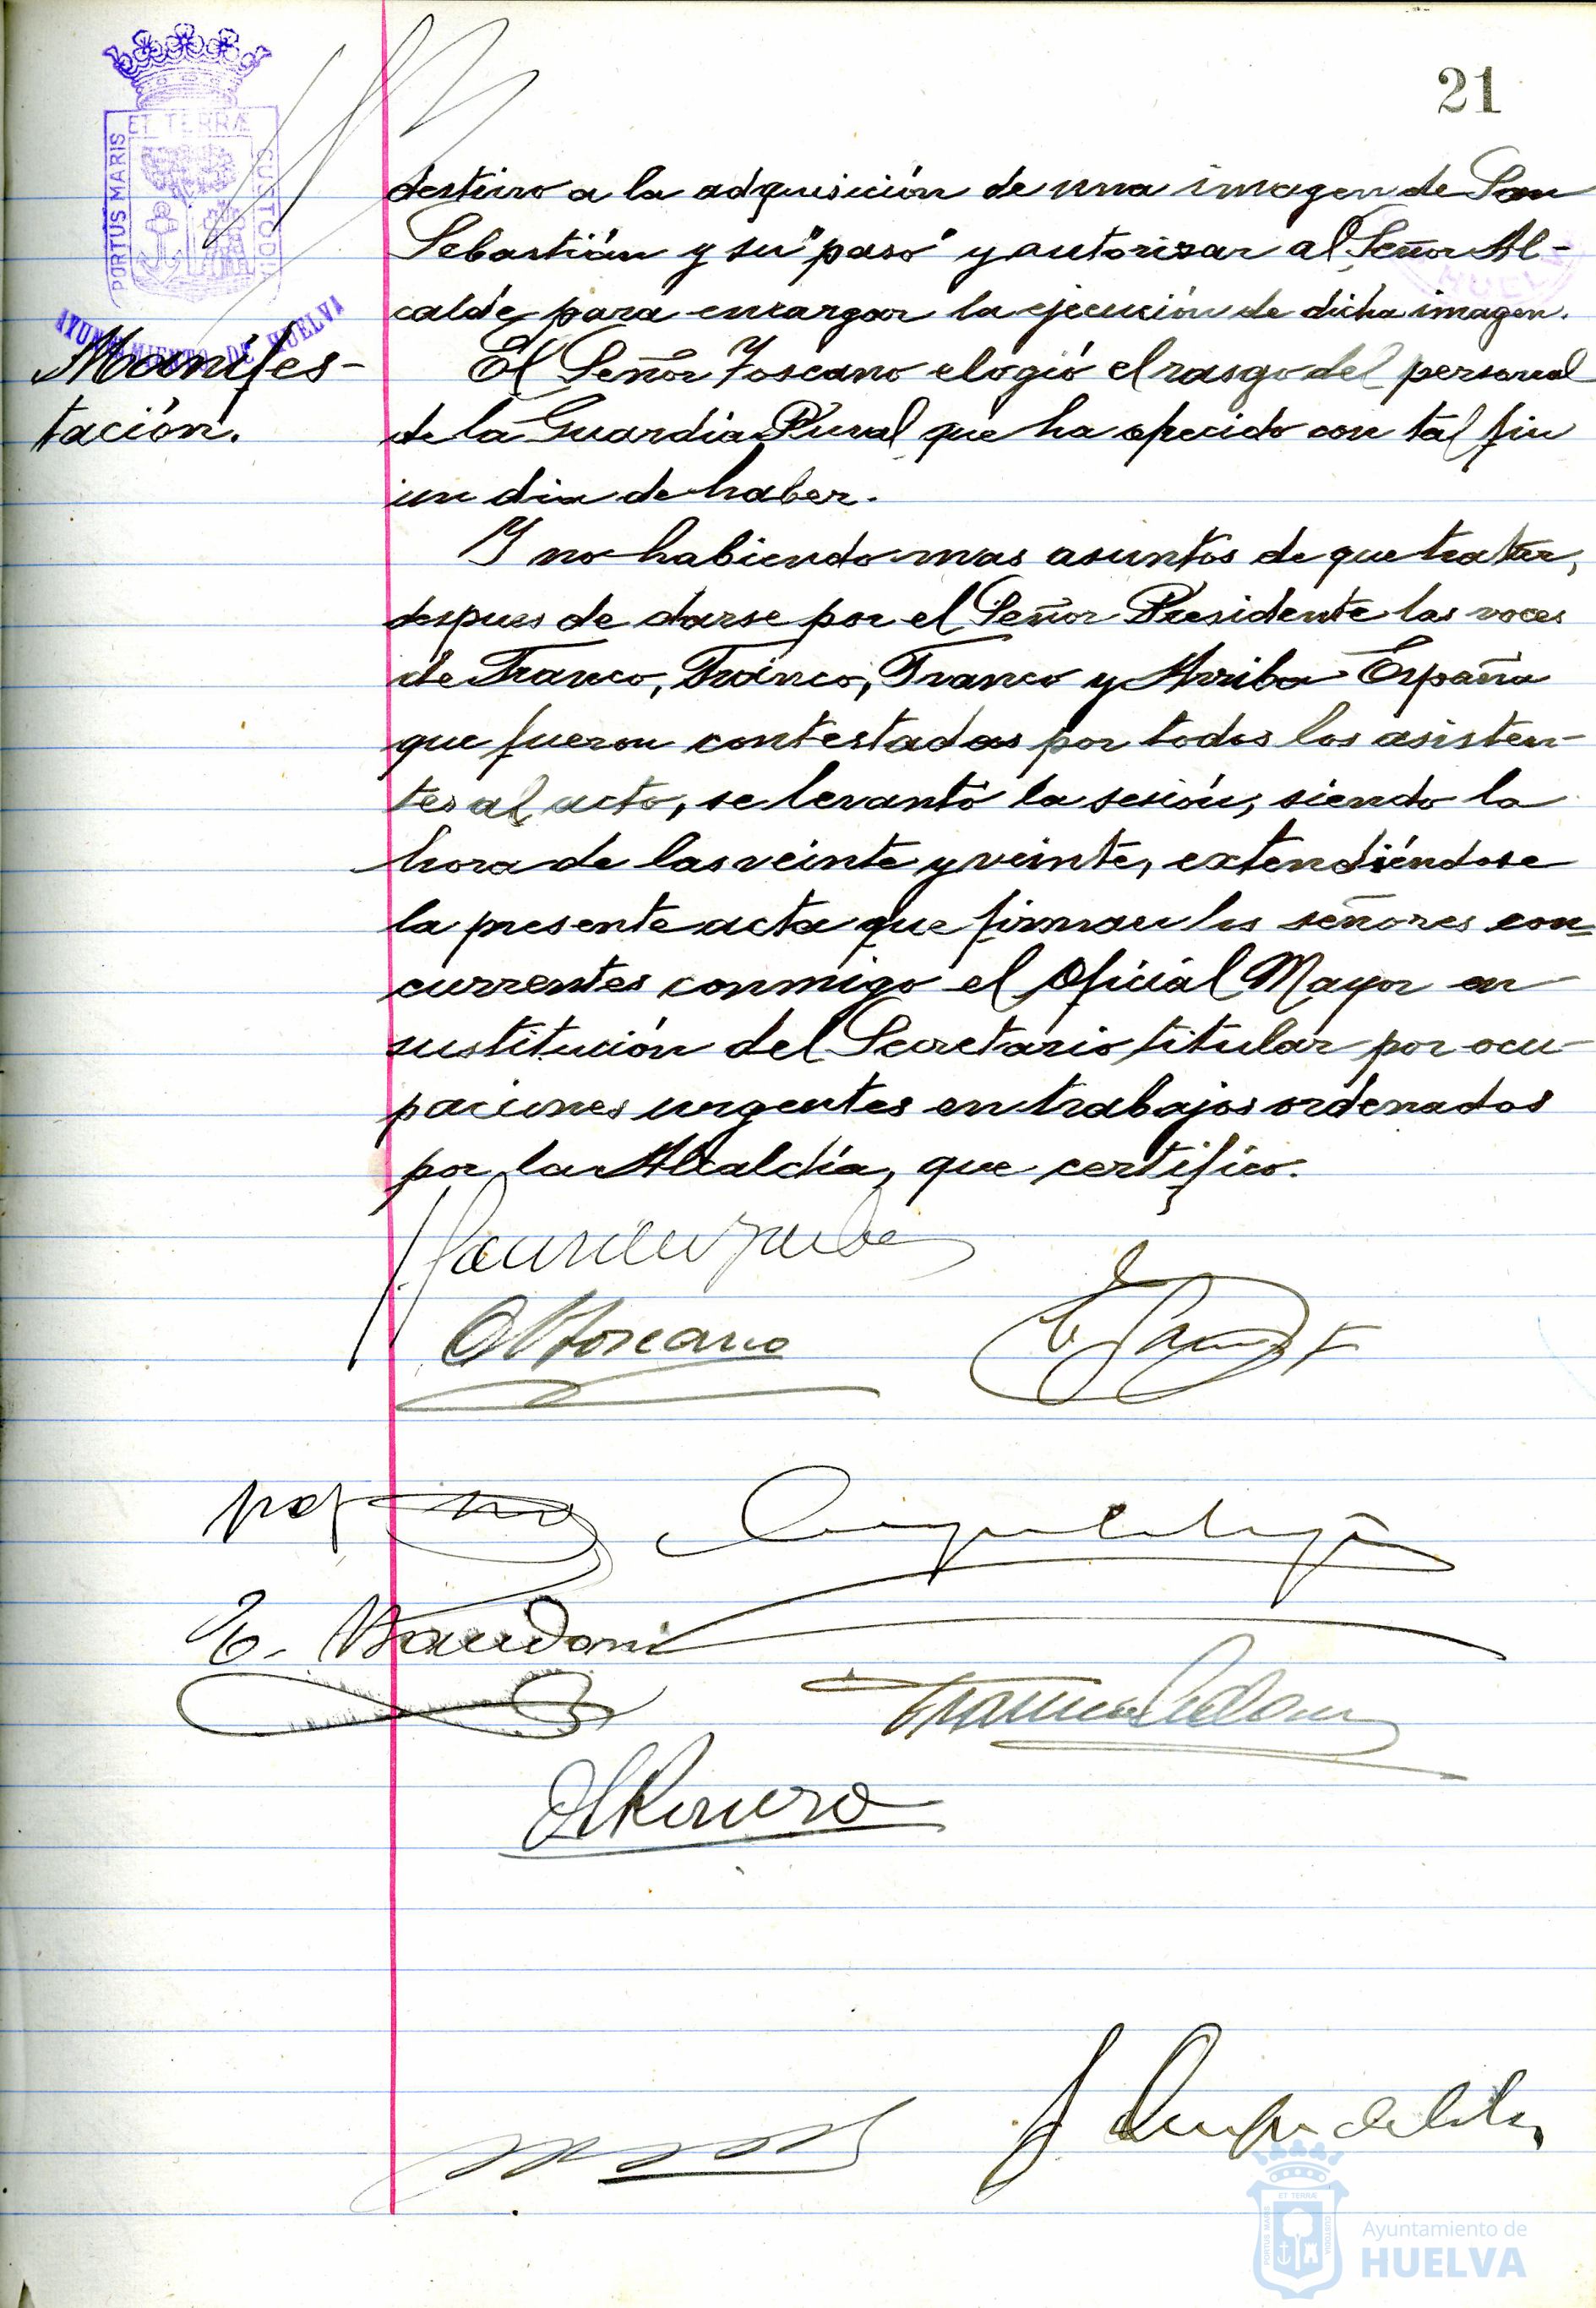 21
PORTUS MARIS
ET TERRÆ
CUSTODIA
AYUNTAMIENTO DE HUELVA
destino a la adquisición de una imagen de San
Sebastián y su "paso" y autorizar al Señor Al-
calde para encargar la ejecución de dicha imagen.
Manifes-
tación.
El Señor Toscano elogió el rasgo del personal
de la Guardia Rural que ha ofrecido con tal fin
un dia de haber.
Y no habiendo mas asuntos de que tratar,
despues de darse por el Señor Presidente las voces
de Franco, Franco, Franco y Arriba España
que fueron contestadas por todos los asisten-
tes al acto, se levantó la sesión, siendo la
hora de las veinte y veinte, extendiéndose
la presente acta que firman los señores con-
currentes conmigo el Oficial Mayor en
sustitución del Secretario titular por ocu-
paciones urgentes en trabajos ordenados
por la Alcaldía, que certifico.
Toscano
Romero
ET TERRÆ
PORTUS MARIS
CUSTODIA
Ayuntamiento de
HUELVA